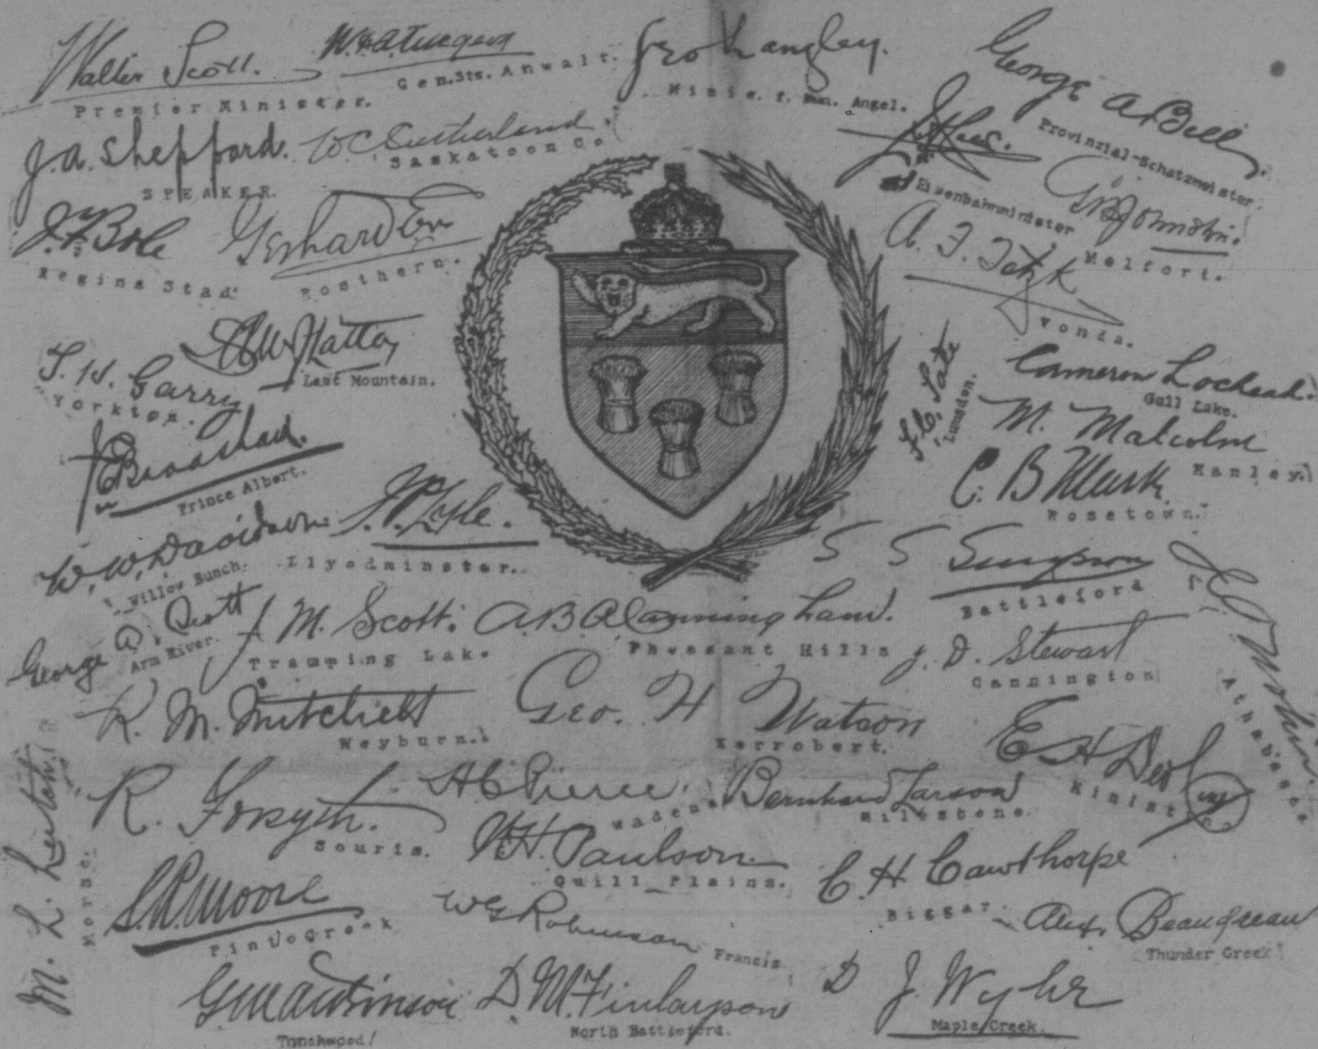 Walter Scott.
Premier Minister.
W.F.A. Turgeon
Gen.Sts. Anwalt.
Geo Langley.
Minis. f. Mun. Angel.
George A Bell
Provinzial-Schatzmeister.
J.A. Sheppard.
SPEAKER.
W C Sutherland
Saskatoon Co
Eisenbahnminister
Melfort.
J.F. Bole
Regina Stad
Gerhard Ens
Rosthern.
A. F. Totzke
Vonda.
T. H. Garry
Yorkton.
Last Mountain.
F.C. Tate
Lumsden.
Cameron Lochead.
Gull Lake.
M. Malcolm
Hanley.
J E Bradshaw.
Prince Albert.
C. B Mark
Rosetown.
W. W. Davidson
Willow Bunch.
J.P. Lyle.
Llyodminster.
S S Simpson
Battleford
George A. Scott
Arm River.
J. M. Scott.
Tramping Lake.
Pheasant Hills
J. D. Stewart
Cannington
Athabasca
R. M. Mitchell
Weyburn.
Geo. H Watson
Kerrobert.
E H Devline
Kinistino.
M. L. Leitch.
Morse.
R. Forsyth.
Souris.
H C Pierce
Wadena
Bernhard Larson
Milestone.
W.H. Paulson
Quill Plains.
C H Cawthorpe
Biggar.
S.R. Moore
Pinto Creek
W G Robinson
Francis
Alex. Beaugreau
Thunder Creek
G M Atkinson
Touchwood!
D. M. Finlayson
North Battleford.
D J Wylie
Maple Creek.